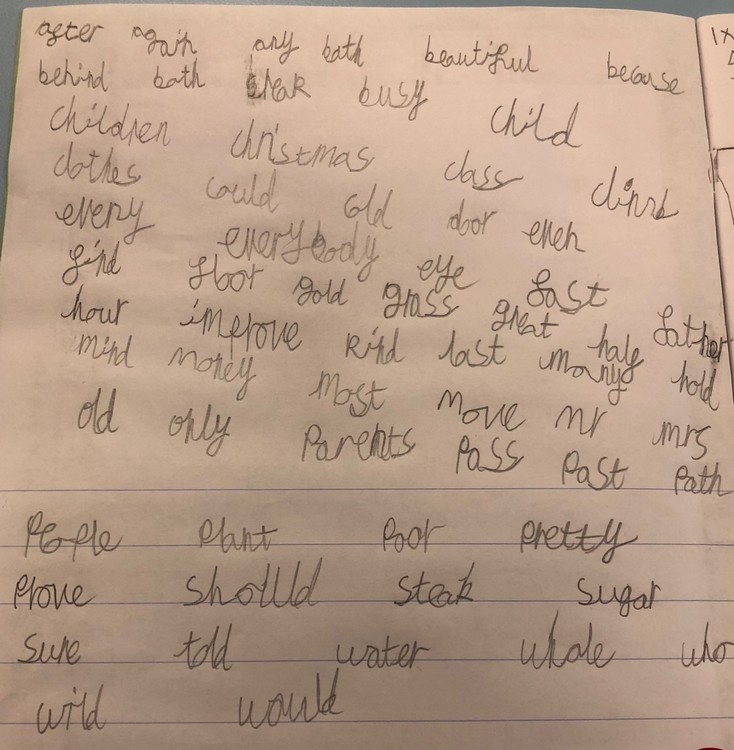 after again any bath beautiful because
behind bath break busy
children christmas class child
clothes could cold door climb
every everybody even
find floor gold grass eye fast
hour improve great father
mind money kind last many half hold
old only most move mr mrs
Parents Pass Past Path
People Plant Poor Pretty
Prove should steak sugar
sure told water whole who
wild would